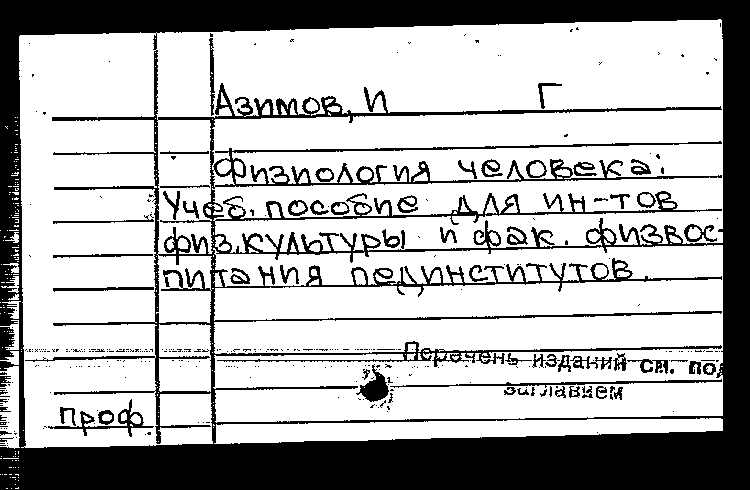 Азимов, И Г
Физиология человека:
Учеб. пособие для ин-тов
физ.культуры и фак. физвос-
питания пединститутов.
Перечень изданий см. под
заглавием
проф.